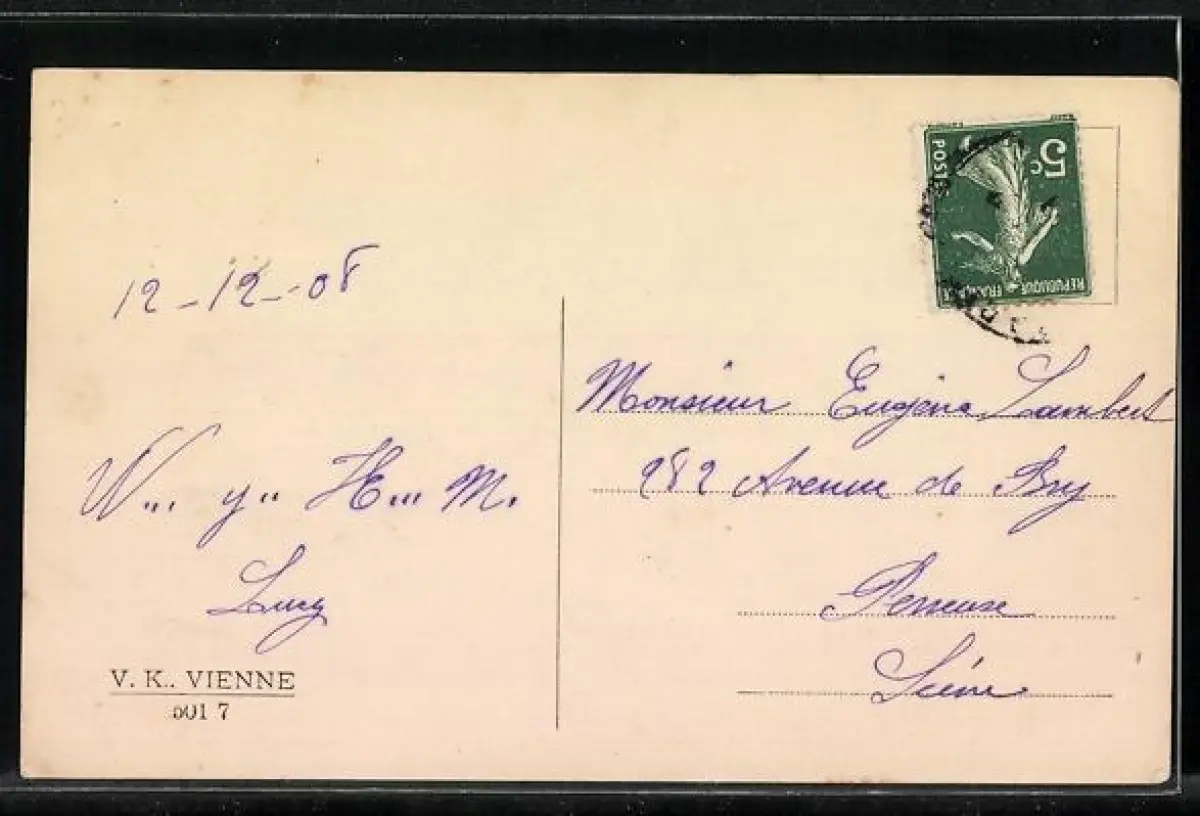 12-12-08
W... y.. H... M.
Lucy
V. K.. VIENNE
501 7
5c
POSTES
REPUBLIQUE FRANÇAISE
Monsieur Eugène Lambert
282 Avenue de Bry
Perreuse
Seine